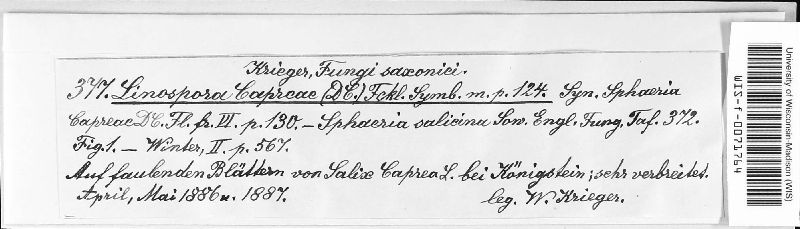 Krieger, Fungi saxonici.
377. Linospora Capreae (DC.) Fckl. Symb. m. p. 124. Syn. Sphaeria
Capreae DC. Fl. fr. VI. p. 130. – Sphaeria salicina Sow. Engl. Fung. Taf. 372.
Fig. 1. – Winter, II. p. 567.
Auf faulenden Blättern von Salix Caprea L. bei Königstein; sehr verbreitet.
April, Mai 1886 u. 1887. leg. W. Krieger.
University of Wisconsin-Madison (WIS)
WIS-f-0071764